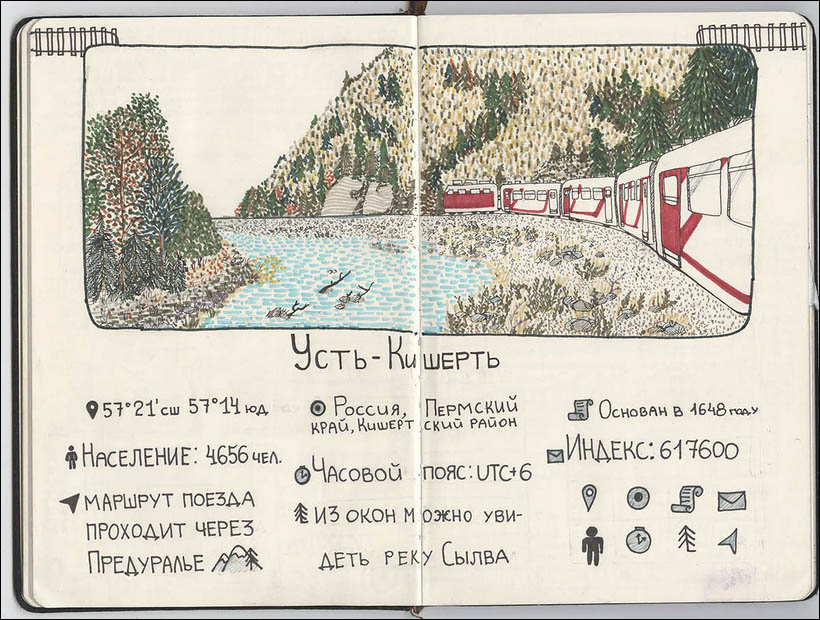 Усть-Кишерть
57°21'сш 57°14 юд
Население: 4656 чел.
маршрут поезда
проходит через
Предуралье
Россия, Пермский
край, Кишертский район
Часовой пояс: UTC+6
из окон можно уви-
деть реку Сылва
Основан в 1648 году
Индекс: 617600